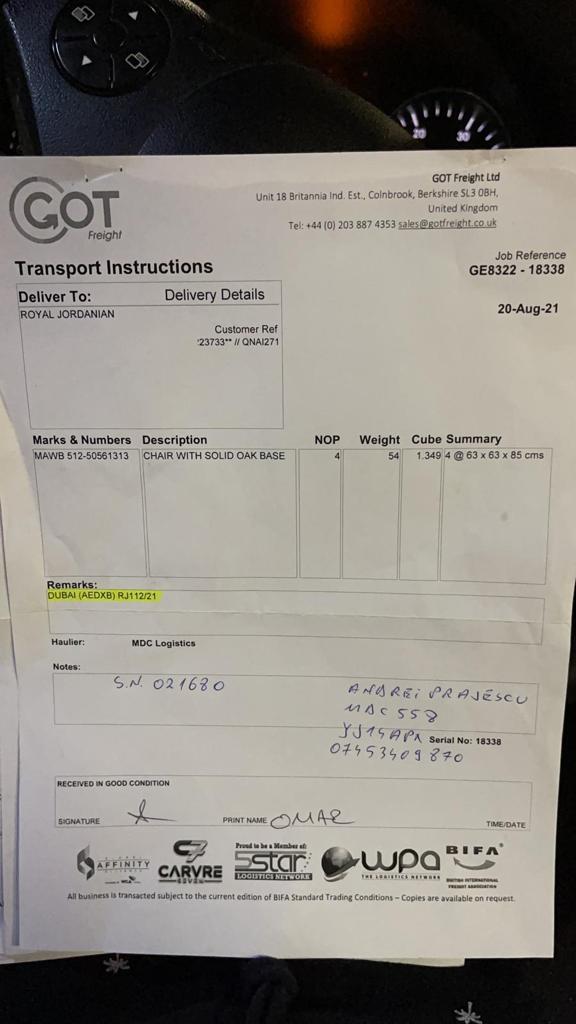 20 30
GOT
Freight
GOT Freight Ltd
Unit 18 Britannia Ind. Est., Colnbrook, Berkshire SL3 0BH,
United Kingdom
Tel: +44 (0) 203 887 4353 sales@gotfreight.co.uk
Transport Instructions
Job Reference
GE8322 - 18338
20-Aug-21
Deliver To: Delivery Details
ROYAL JORDANIAN
Customer Ref
23733** // QNAI271
Marks & Numbers Description NOP Weight Cube Summary
MAWB 512-50561313 CHAIR WITH SOLID OAK BASE 4 54 1.349 4 @ 63 x 63 x 85 cms
Remarks:
DUBAI (AEDXB) RJ112/21
Haulier: MDC Logistics
Notes:
S.N. 021680
ANDREi PRAJESCU
MDC 558
Serial No: 18338
07453409870
RECEIVED IN GOOD CONDITION
SIGNATURE
PRINT NAME OMAR
TIME/DATE
AFFINITY
CARVRE
SEVEN
Proud to be a Member of:
5star
LOGISTICS NETWORK
wpa
THE LOGISTICS NETWORK
BIFA
BRITISH INTERNATIONAL
FREIGHT ASSOCIATION
All business is transacted subject to the current edition of BIFA Standard Trading Conditions – Copies are available on request.